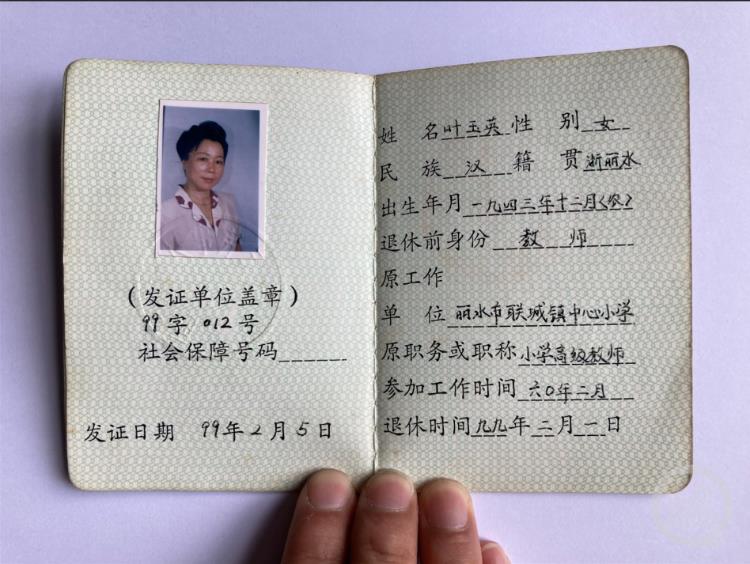 (发证单位盖章)
99字 012号
社会保障号码
发证日期 99年2月5日
姓名 叶玉英 性别 女
民族 汉 籍贯 浙丽水
出生年月 一九四三年十二月(农)
退休前身份 教师
原工作
单位 丽水市联城镇中心小学
原职务或职称 小学高级教师
参加工作时间 六0年二月
退休时间 九九年二月一日